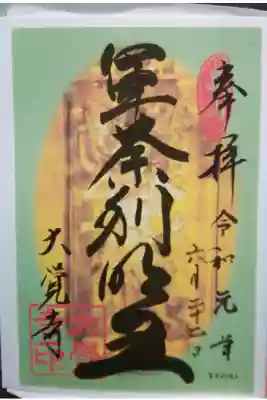 奉拝
令和元年
六月二十二日
軍荼利明王
大覚寺